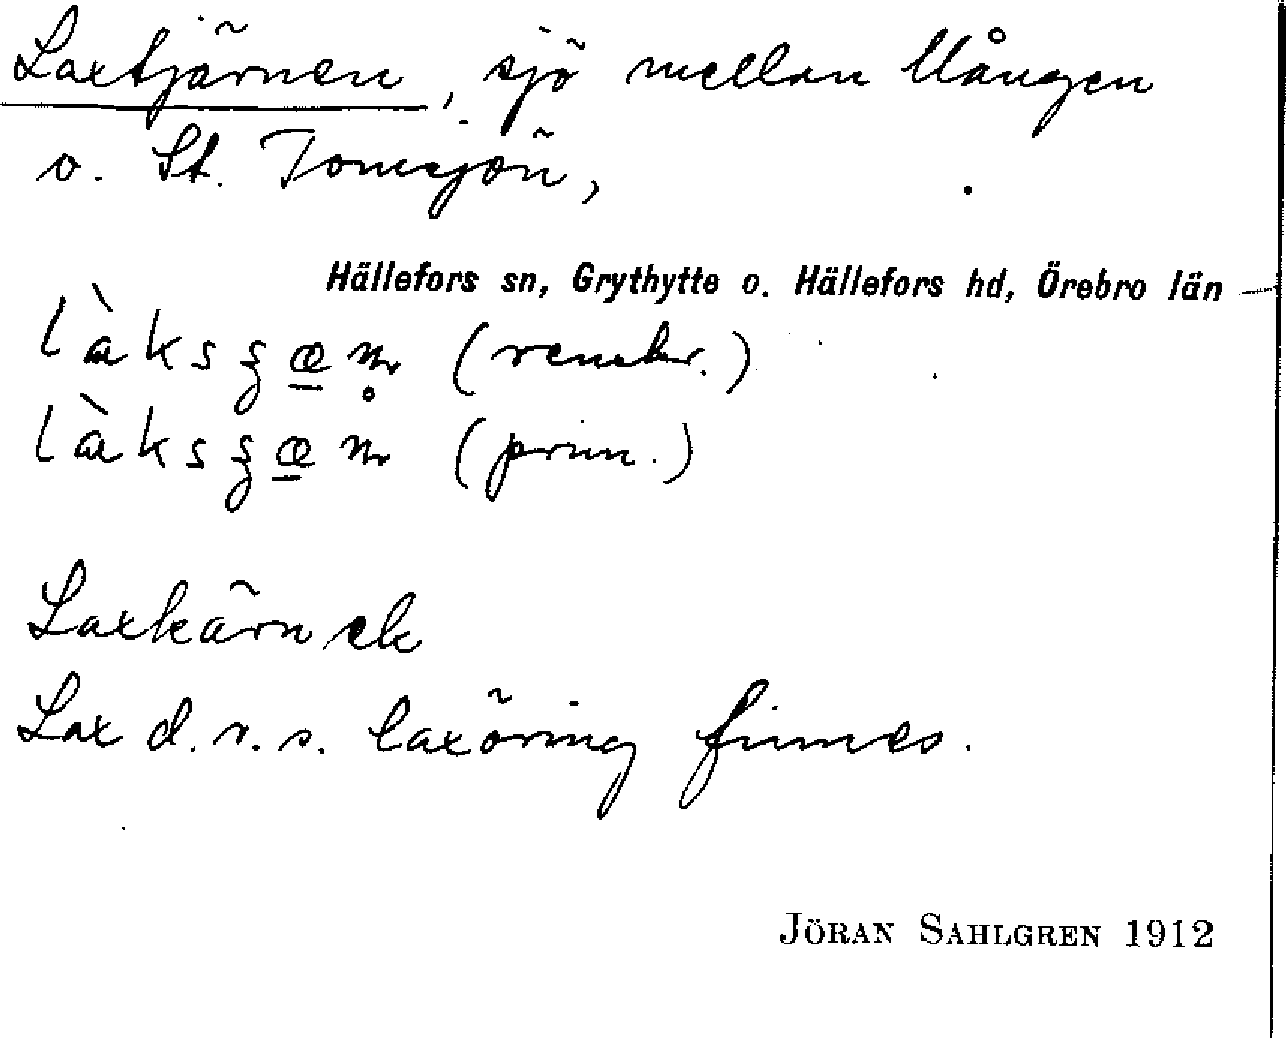 Laxtjärnen, sjö mellan Mången
o. St. Tomsjön,
Hällefors sn, Grythytte o. Hällefors hd, Örebro län
(renskr.)
(prim.)
Laxkärn ek
Lax d.v.s. laxöring finnes.
JÖRAN SAHLGREN 1912